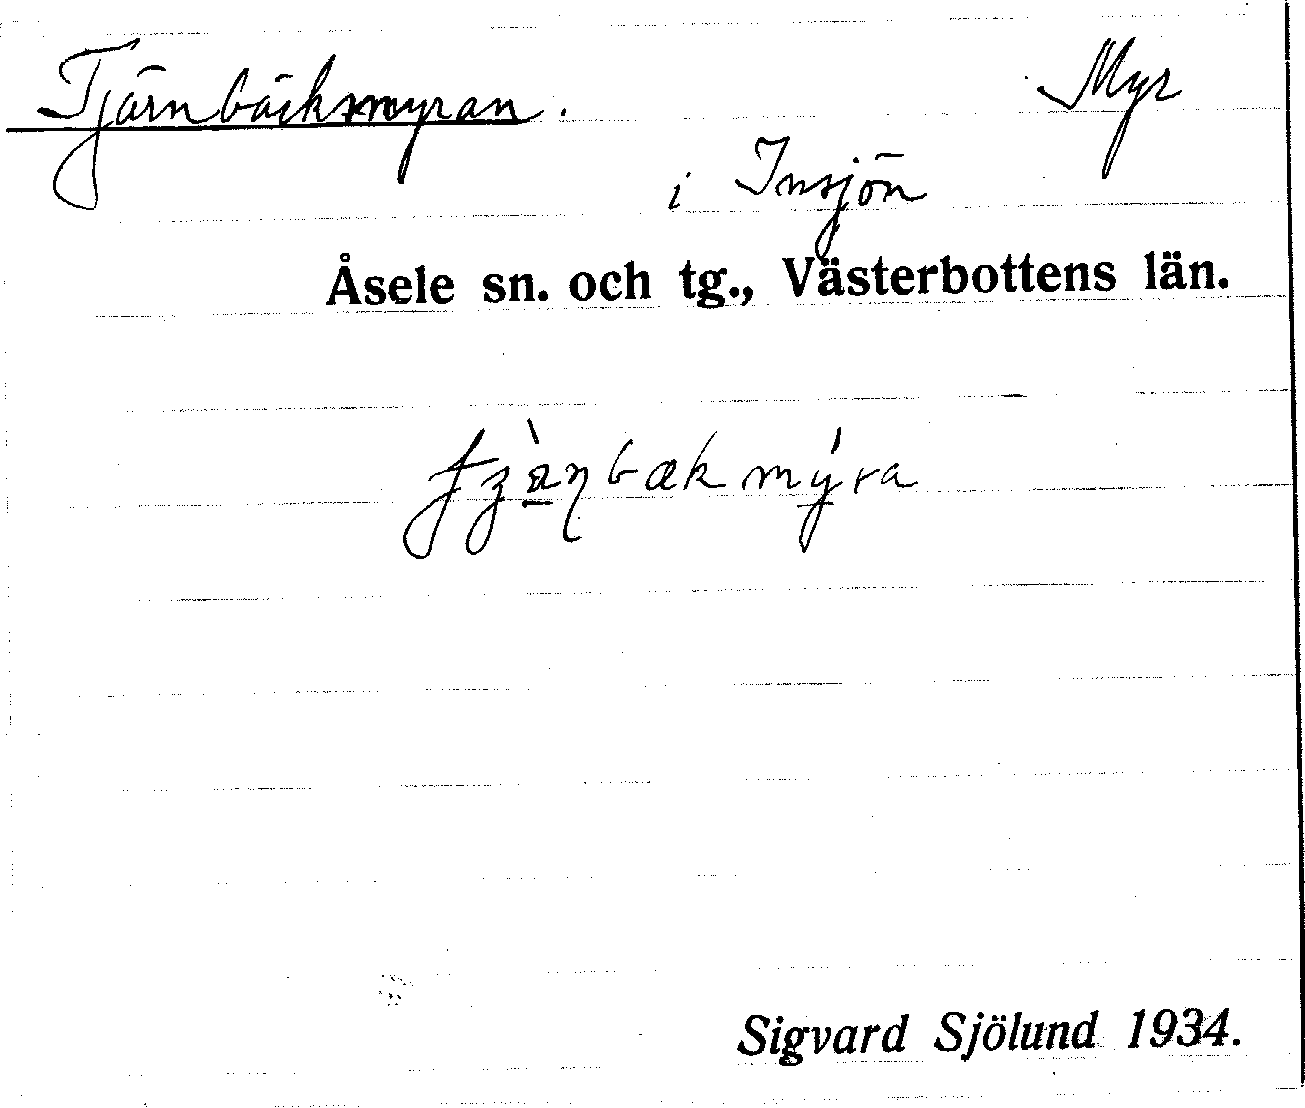 Tjärnbäckmyran. Myr
i Insjön
Åsele sn. och tg., Västerbottens län.
Sigvard Sjölund 1934.